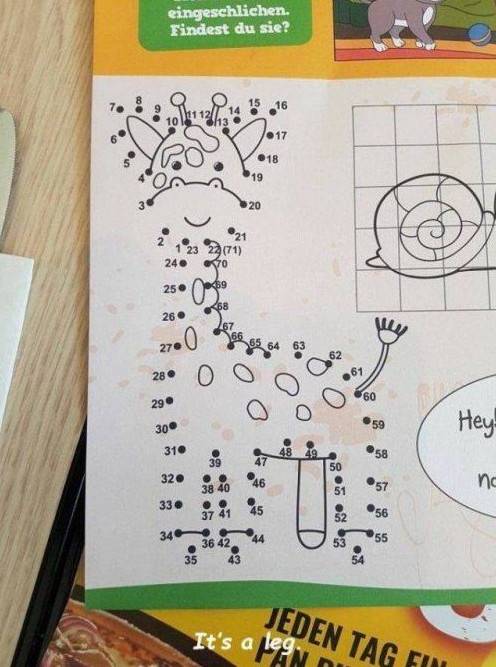 eingeschlichen.
Findest du sie?
7 8 9 10 11 12 13 14 15 16
6 17
5 18
4 19
3 20
2 1 23 22 (71) 21
24 70
25 69
26 68
67
27 66 65 64 63 62
28 61
29 60
30 59
31 39 47 48 49 50 58
32 38 40 46 51 57
33 37 41 45 52 56
34 36 42 44 53 55
35 43 54
Hey!
JEDEN TAG EIN
It's a leg.